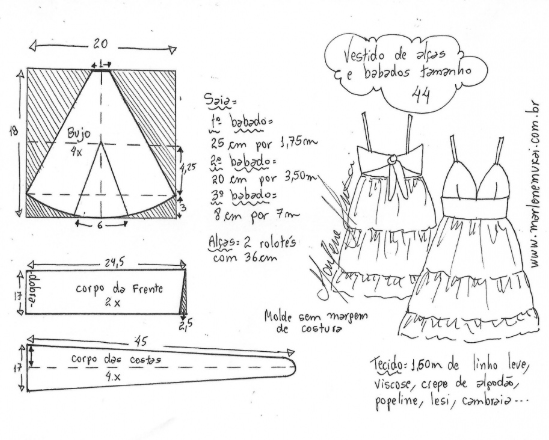 20
1
18
Bujo
4x
4,25
3
6
24,5
dobra
17
corpo da Frente
2 x
2,5
45
17
corpo das costas
4.x
Saia=
1º babado=
25 cm por 1,75m
2º babado=
20 cm por 3,50m
3º babado=
8 cm por 7m
Alças= 2 rolotês
com 36cm
Molde sem margem
de costura
Vestido de alças
e babados tamanho
44
Marlene Mukai
www.marlenemukai.com.br
Tecido= 1,60m de linho leve,
viscose, crepe de algodão,
popeline, lesi, cambraia...